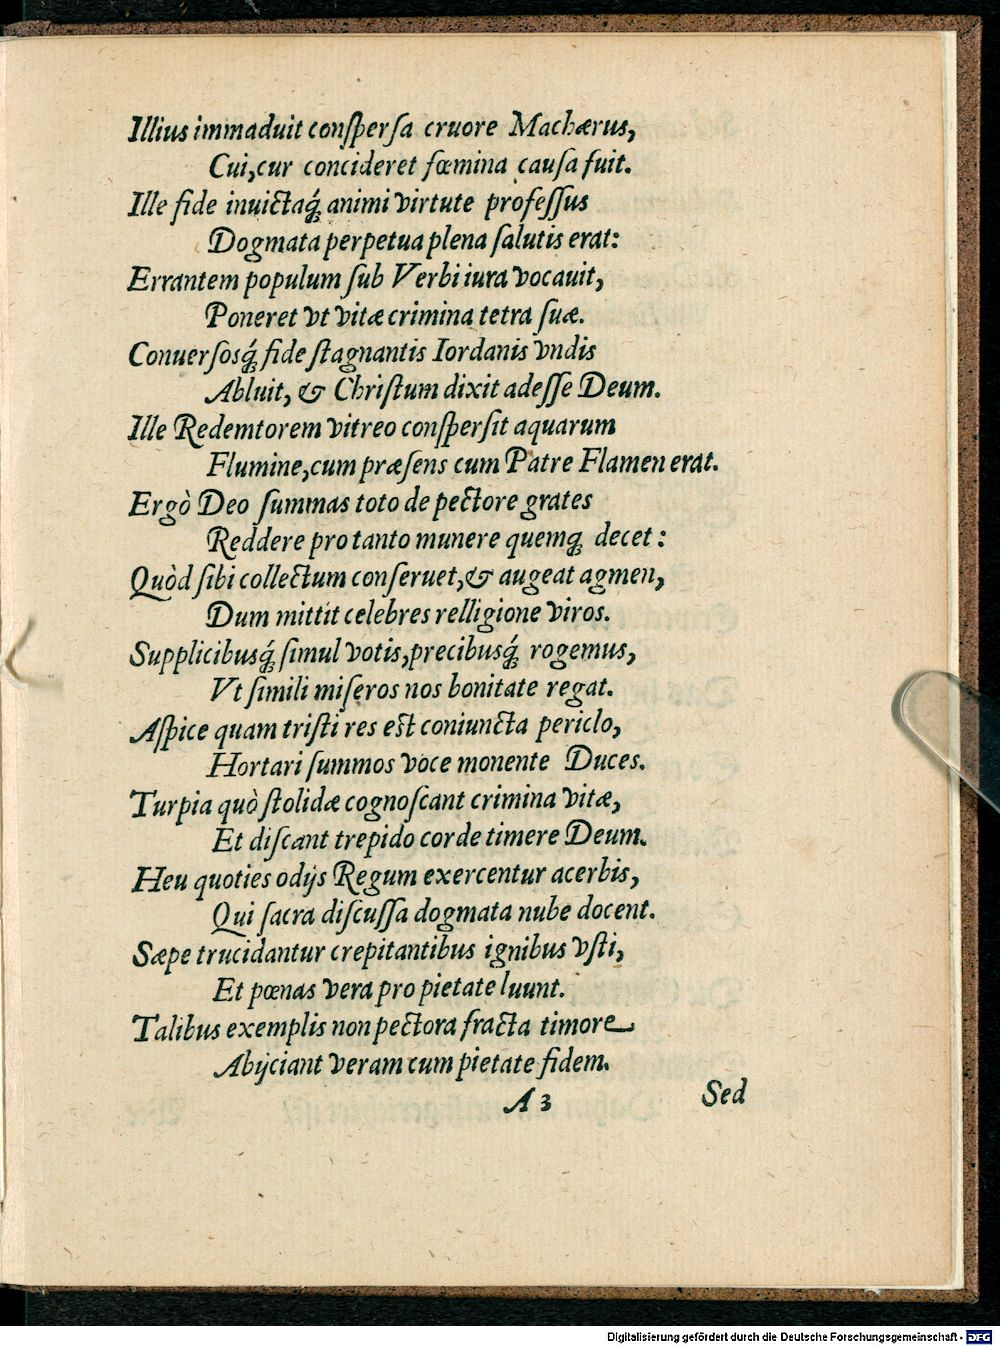 Illius immaduit conſperſa cruore Machærus,
Cui, cur concideret fœmina cauſa fuit.
Ille fide inuictaq́ꝫ animi virtute profeſſus
Dogmata perpetua plena ſalutis erat:
Errantem populum ſub Verbi iura vocauit,
Poneret vt vitæ crimina tetra ſuæ.
Conuerſosq́ꝫ fide ſtagnantis Iordanis vndis
Abluit, & Chriſtum dixit adeſſe Deum.
Ille Redemtorem vitreo conſperſit aquarum
Flumine, cum præſens cum Patre Flamen erat.
Ergò Deo ſummas toto de pectore grates
Reddere pro tanto munere quemqꝫ decet:
Quòd ſibi collectum conſeruet, & augeat agmen,
Dum mittit celebres relligione viros.
Supplicibusq́ꝫ ſimul votis, precibusq́ꝫ rogemus,
Vt ſimili miſeros nos bonitate regat.
Aſpice quam triſti res eſt coniuncta periclo,
Hortari ſummos voce monente Duces.
Turpia quò ſtolidæ cognoſcant crimina vitæ,
Et diſcant trepido corde timere Deum.
Heu quoties odijs Regum exercentur acerbis,
Qui ſacra diſcuſſa dogmata nube docent.
Sæpe trucidantur crepitantibus ignibus vſti,
Et pœnas vera pro pietate luunt.
Talibus exemplis non pectora fracta timore
Abijciant veram cum pietate fidem.
A 3 Sed
Digitalisierung gefördert durch die Deutsche Forschungsgemeinschaft - DFG